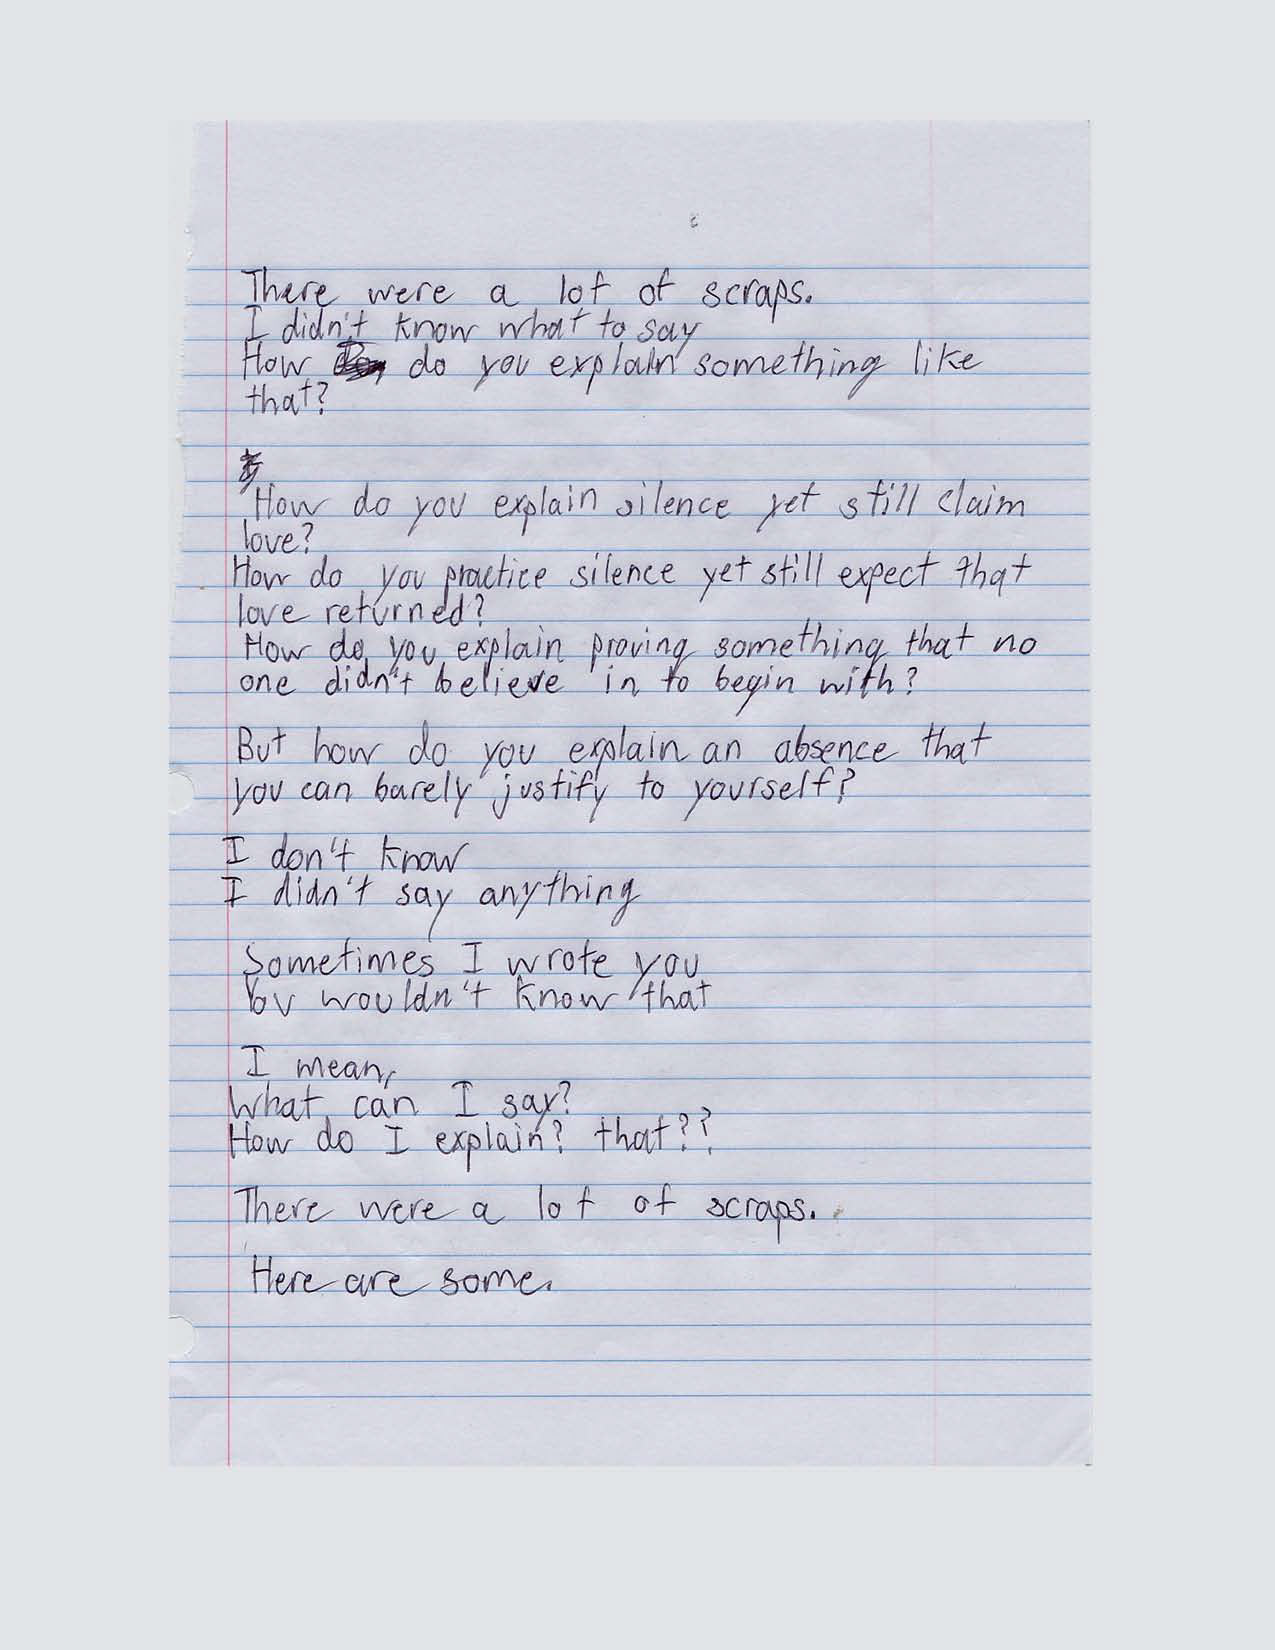 There were a lot of scraps.
I didn't know what to say
How do you explain something like
that?
How do you explain silence yet still claim
love?
How do you practice silence yet still expect that
love returned?
How do you explain proving something that no
one didn't believe in to begin with?
But how do you explain an absence that
you can barely justify to yourself?
I don't know
I didn't say anything
Sometimes I wrote you
You wouldn't know that
I mean,
What can I say?
How do I explain? that??
There were a lot of scraps.
Here are some.